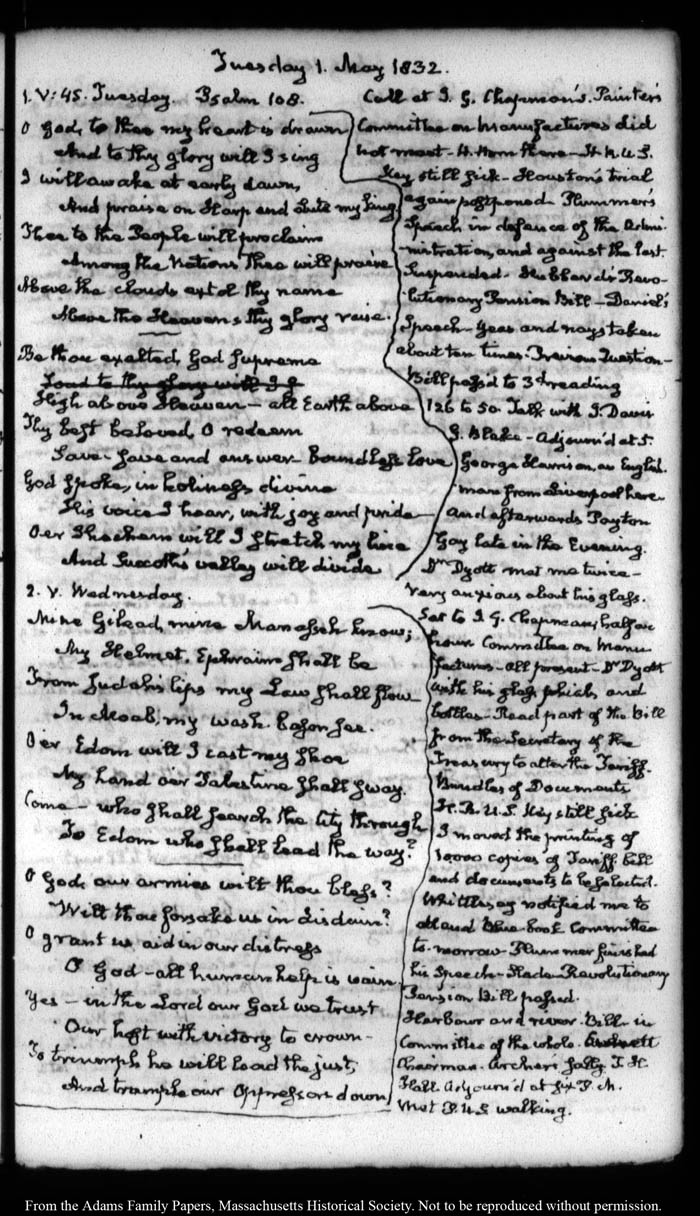 Tuesday 1. May 1832.
1. V: 45. Tuesday. Psalm 108.
O God, to thee my heart is drawn
And to thy glory will I sing
I will awake at early dawn,
And praise on Harp and Lute my King
Thee to the People will proclaim
Among the Nations thee will praise
Above the clouds extol thy name
Above the Heavens thy glory raise.
Be thou exalted, God Supreme
Loud to thy glory will I
High above Heaven – all Earth above
Thy best beloved, O redeem
Save – save and answer boundless Love
God spoke, in holiness divine
His voice I hear, with joy and pride
Oer Shechem will I stretch my line
And Succoth's valley will divide
2. V. Wednesday.
Mine Gilead, mine Manasseh know;
My Helmet, Ephraim shall be
From Judah's lips my Law shall flow
In Moab, my wash bason see.
Oer Edom will I cast my shoe
My hand oer Palestine shall sway.
Come – who shall search the City through
To Edom who shall lead the way?
O God, our armies wilt thou bless?
Wilt thou forsake us in disdain?
O grant us aid in our distress
O God – all human help is vain
Yes – in the Lord our God we trust
Our host with victory to crown –
To triumph he will lead the just,
And trample our Oppressors down
Call at J. G. Chapman's. Painter's
Committee on Manufactures did
not meet – H. Horn there – H. R. U. S.
Key still sick – Houston's trial
again postponed – Plummer's
Speech in defence of the Admi-
nistration, and against the last.
Suspended – Hubbard's Revo-
lutionary Pension Bill – Daniel's
Speech – Yeas and nays taken
about ten times – Previous Question –
Bill pass'd to 3d reading
126 to 50. Talk with J. Davis
G. Blake – Adjourn'd at 5.
George Harrison, an English-
man from Liverpool here
and afterwards Payton
Gay late in the Evening.
Dr Dyott met me twice –
very anxious about his glass.
Sat to J. G. Chapman, half an
hour Committee on Manu
factures – all present – Dr Dyott
with his glass phials, and
bottles – Read part of the Bill
from the Secretary of the
Treasury to alter the Tariff.
Bundles of Documents
H. R. U. S. Key still sick
I moved the printing of
10,000 copies of Tariff bill
and documents to be selected.
Whittlesey notified me to
attend Blue-book Committee
to-morrow – Plummer finished
his Speech – Slade – Revolutionary
Pension Bill passed.
Harbour and river Bill in
Committee of the whole.
Chairman – Archer's sally. T. H.
Hall Adjourn'd at six P. M.
Met P. U. S. walking.
From the Adams Family Papers, Massachusetts Historical Society. Not to be reproduced without permission.